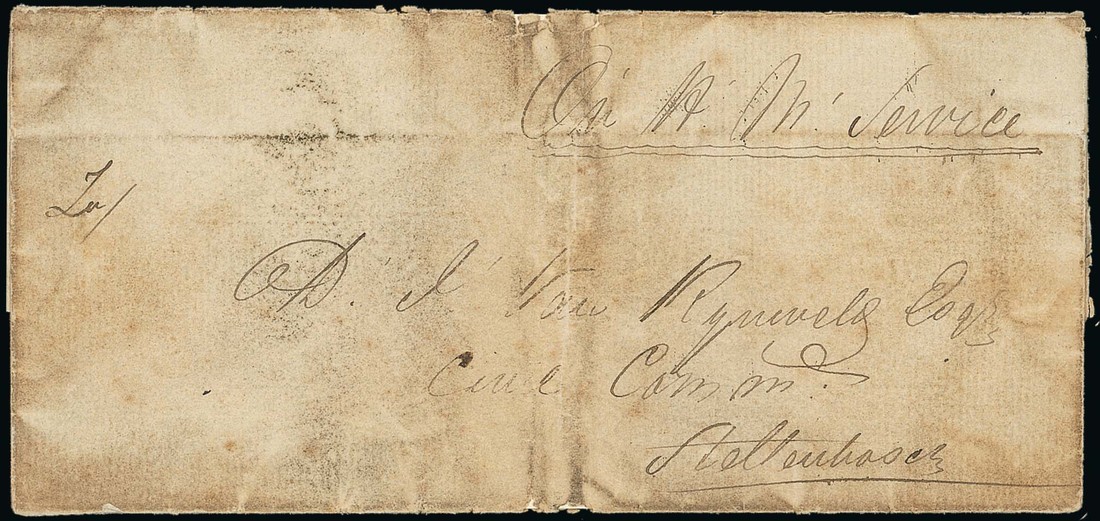 On H. M. Service
To/
D. J. Van Ryneveld Esqr
Civil Comm.
Stellenbosch